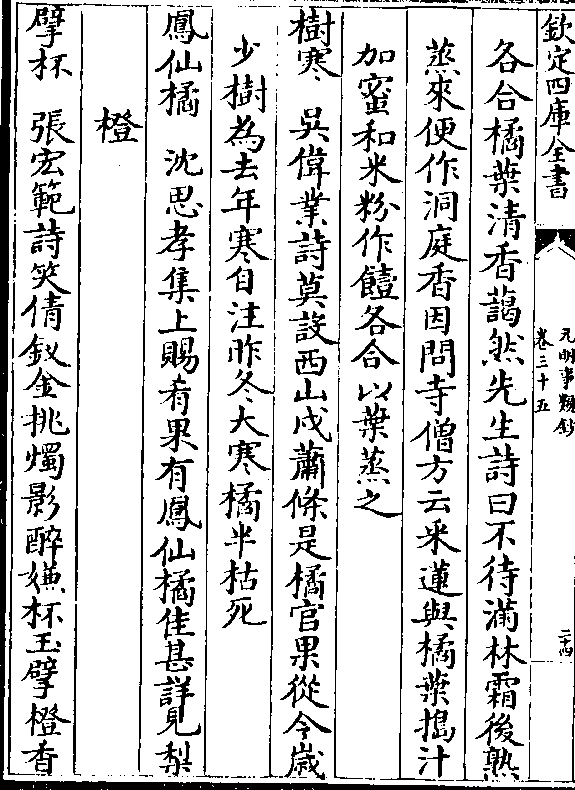 欽定四庫全書
元明事類鈔
卷三十五
二十四
各合橘葉清香藹然先生詩曰不待滿林霜後熟
蒸來便作洞庭香因問寺僧方云采蓮與橘葉搗汁
加蜜和米粉作饐各合以葉蒸之
樹寒 吳偉業詩莫設西山戍蕭條是橘官果從今歲
少樹為去年寒自注昨冬大寒橘半枯死
鳳仙橘 沈思孝集上賜肴果有鳳仙橘佳甚詳見梨
橙
擘杯 張宏範詩笑倩釵金挑燭影醉嫌杯玉擘橙香